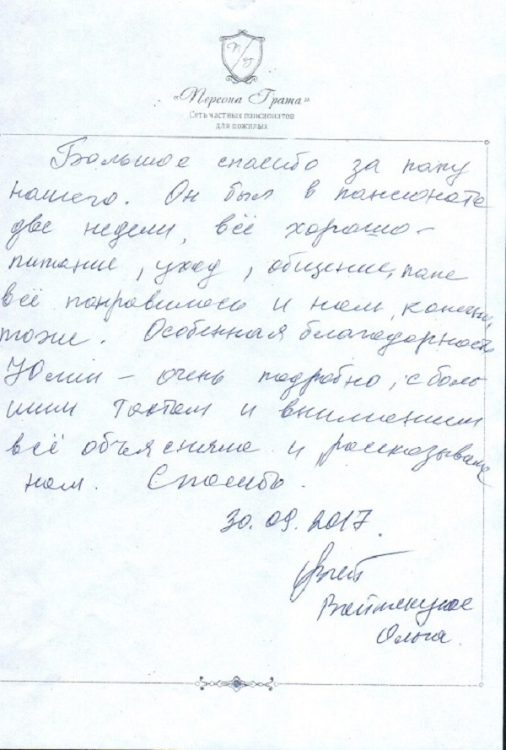 П/Г
«Персона Грата»
Сеть частных пансионатов
для пожилых
Большое спасибо за папу
нашего. Он был в пансионате
две недели, всё хорошо –
питание, уход, общение, папе
всё понравилось и нам, конечно,
тоже. Особенная благодарность
Юлии – очень подробно, с боль
шим тактом и вниманием
всё объясняла и рассказывала
нам. Спасибо.
30.09.2017.
Ольга.